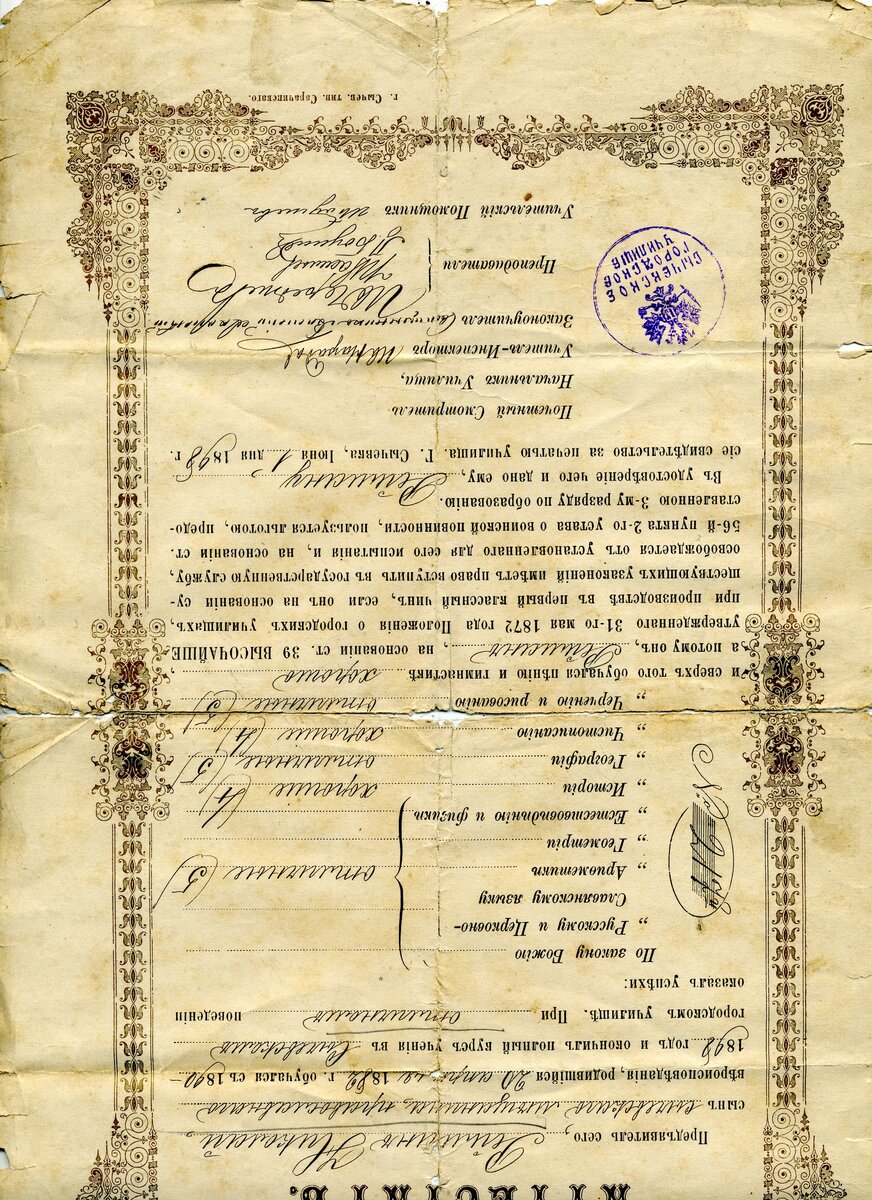 АТТЕСТАТЪ.
Предъявитель сего, Николай,
сынъ сычевскаго мѣщанина, православнаго
вѣроисповѣданія, родившійся 20 апрѣля 1882 г. обучался съ 1890
1898 годъ и окончилъ полный курсъ ученія въ Сычевскомъ
городскомъ училищѣ. При отличномъ поведеніи
оказалъ успѣхи:
По закону Божію
„ Русскому и Церковно-
Славянскому языку
„ Ариѳметикѣ отличные (5)
„ Геометріи
„ Естествовѣдѣнію и физикѣ
„ Исторіи хорошіе (4)
„ Географіи отличные (5)
„ Чистописанію хорошіе (4)
„ Черченію и рисованію отличные (5)
и сверхъ того обучался пѣнію и гимнастикѣ хорошо
а потому онъ, , на основаніи ст. 39 ВЫСОЧАЙШЕ
утвержденнаго 31-го мая 1872 года Положенія о городскихъ училищахъ,
при производствѣ въ первый классный чинъ, если онъ на основаніи су-
ществующихъ узаконеній имѣетъ право вступить въ государственную службу,
освобождается отъ установленнаго для сего испытанія и, на основаніи ст.
56-й пункта 2-го устава о воинской повинности, пользуется льготою, предо-
ставленною 3-му разряду по образованію.
Въ удостовѣреніе чего и дано ему,
сіе свидѣтельство за печатью училища. Г. Сычевка, Іюня 1 дня 1898 г
Почетный Смотритель
Начальникъ Училища,
Учитель-Инспекторъ
Законоучитель
Преподаватели
Учительскій Помощникъ
СЫЧЕВСКОЕ
ГОРОДСКОЕ
УЧИЛИЩЕ
г. Сычев. тип. Сарачинскаго.